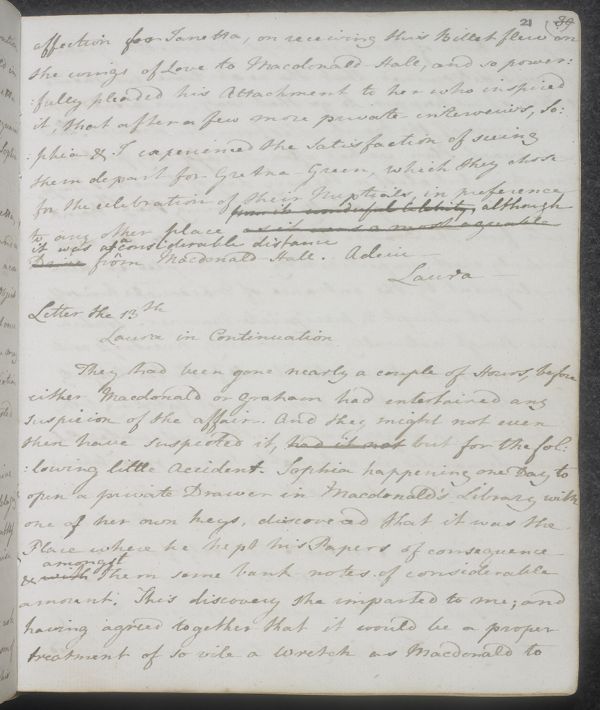 21 89
affection for Janetta, on receiving this Billet flew on
the wings of Love to Macdonald-Hall, and so power:
:fully pleaded his Attachment to her who inspired
it, that after a few more private interveiws, So:
:phia & I experienced the Satisfaction of seeing
them depart for Gretna-Green, which they chose
for the celebration of their Nuptials, in preference
from its wonderful Celebrity, although
to any other place as it was a most agreable
it was at a considerable distance
Drive from Macdonald Hall. Adeiu
Laura
Letter the 13th
Laura in Continuation
They had been gone nearly a couple of Hours, before
either Macdonald or Graham had entertained any
suspicion of the affair. And they might not even
then have suspected it, had it not but for the fol:
:lowing little Accident. Sophia happening one Day to
open a private Drawer in Macdonald's Library with
one of her own keys, discovered that it was the
Place where he kept his Papers of consequence
amongst
& with them some bank notes of considerable
amount. This discovery she imparted to me; and
having agreed together that it would be a proper
treatment of so vile a Wretch as Macdonald to